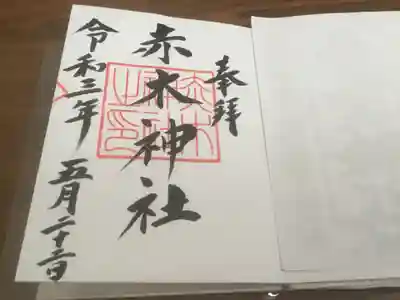 奉拝
赤木神社
令和三年 五月二十二日